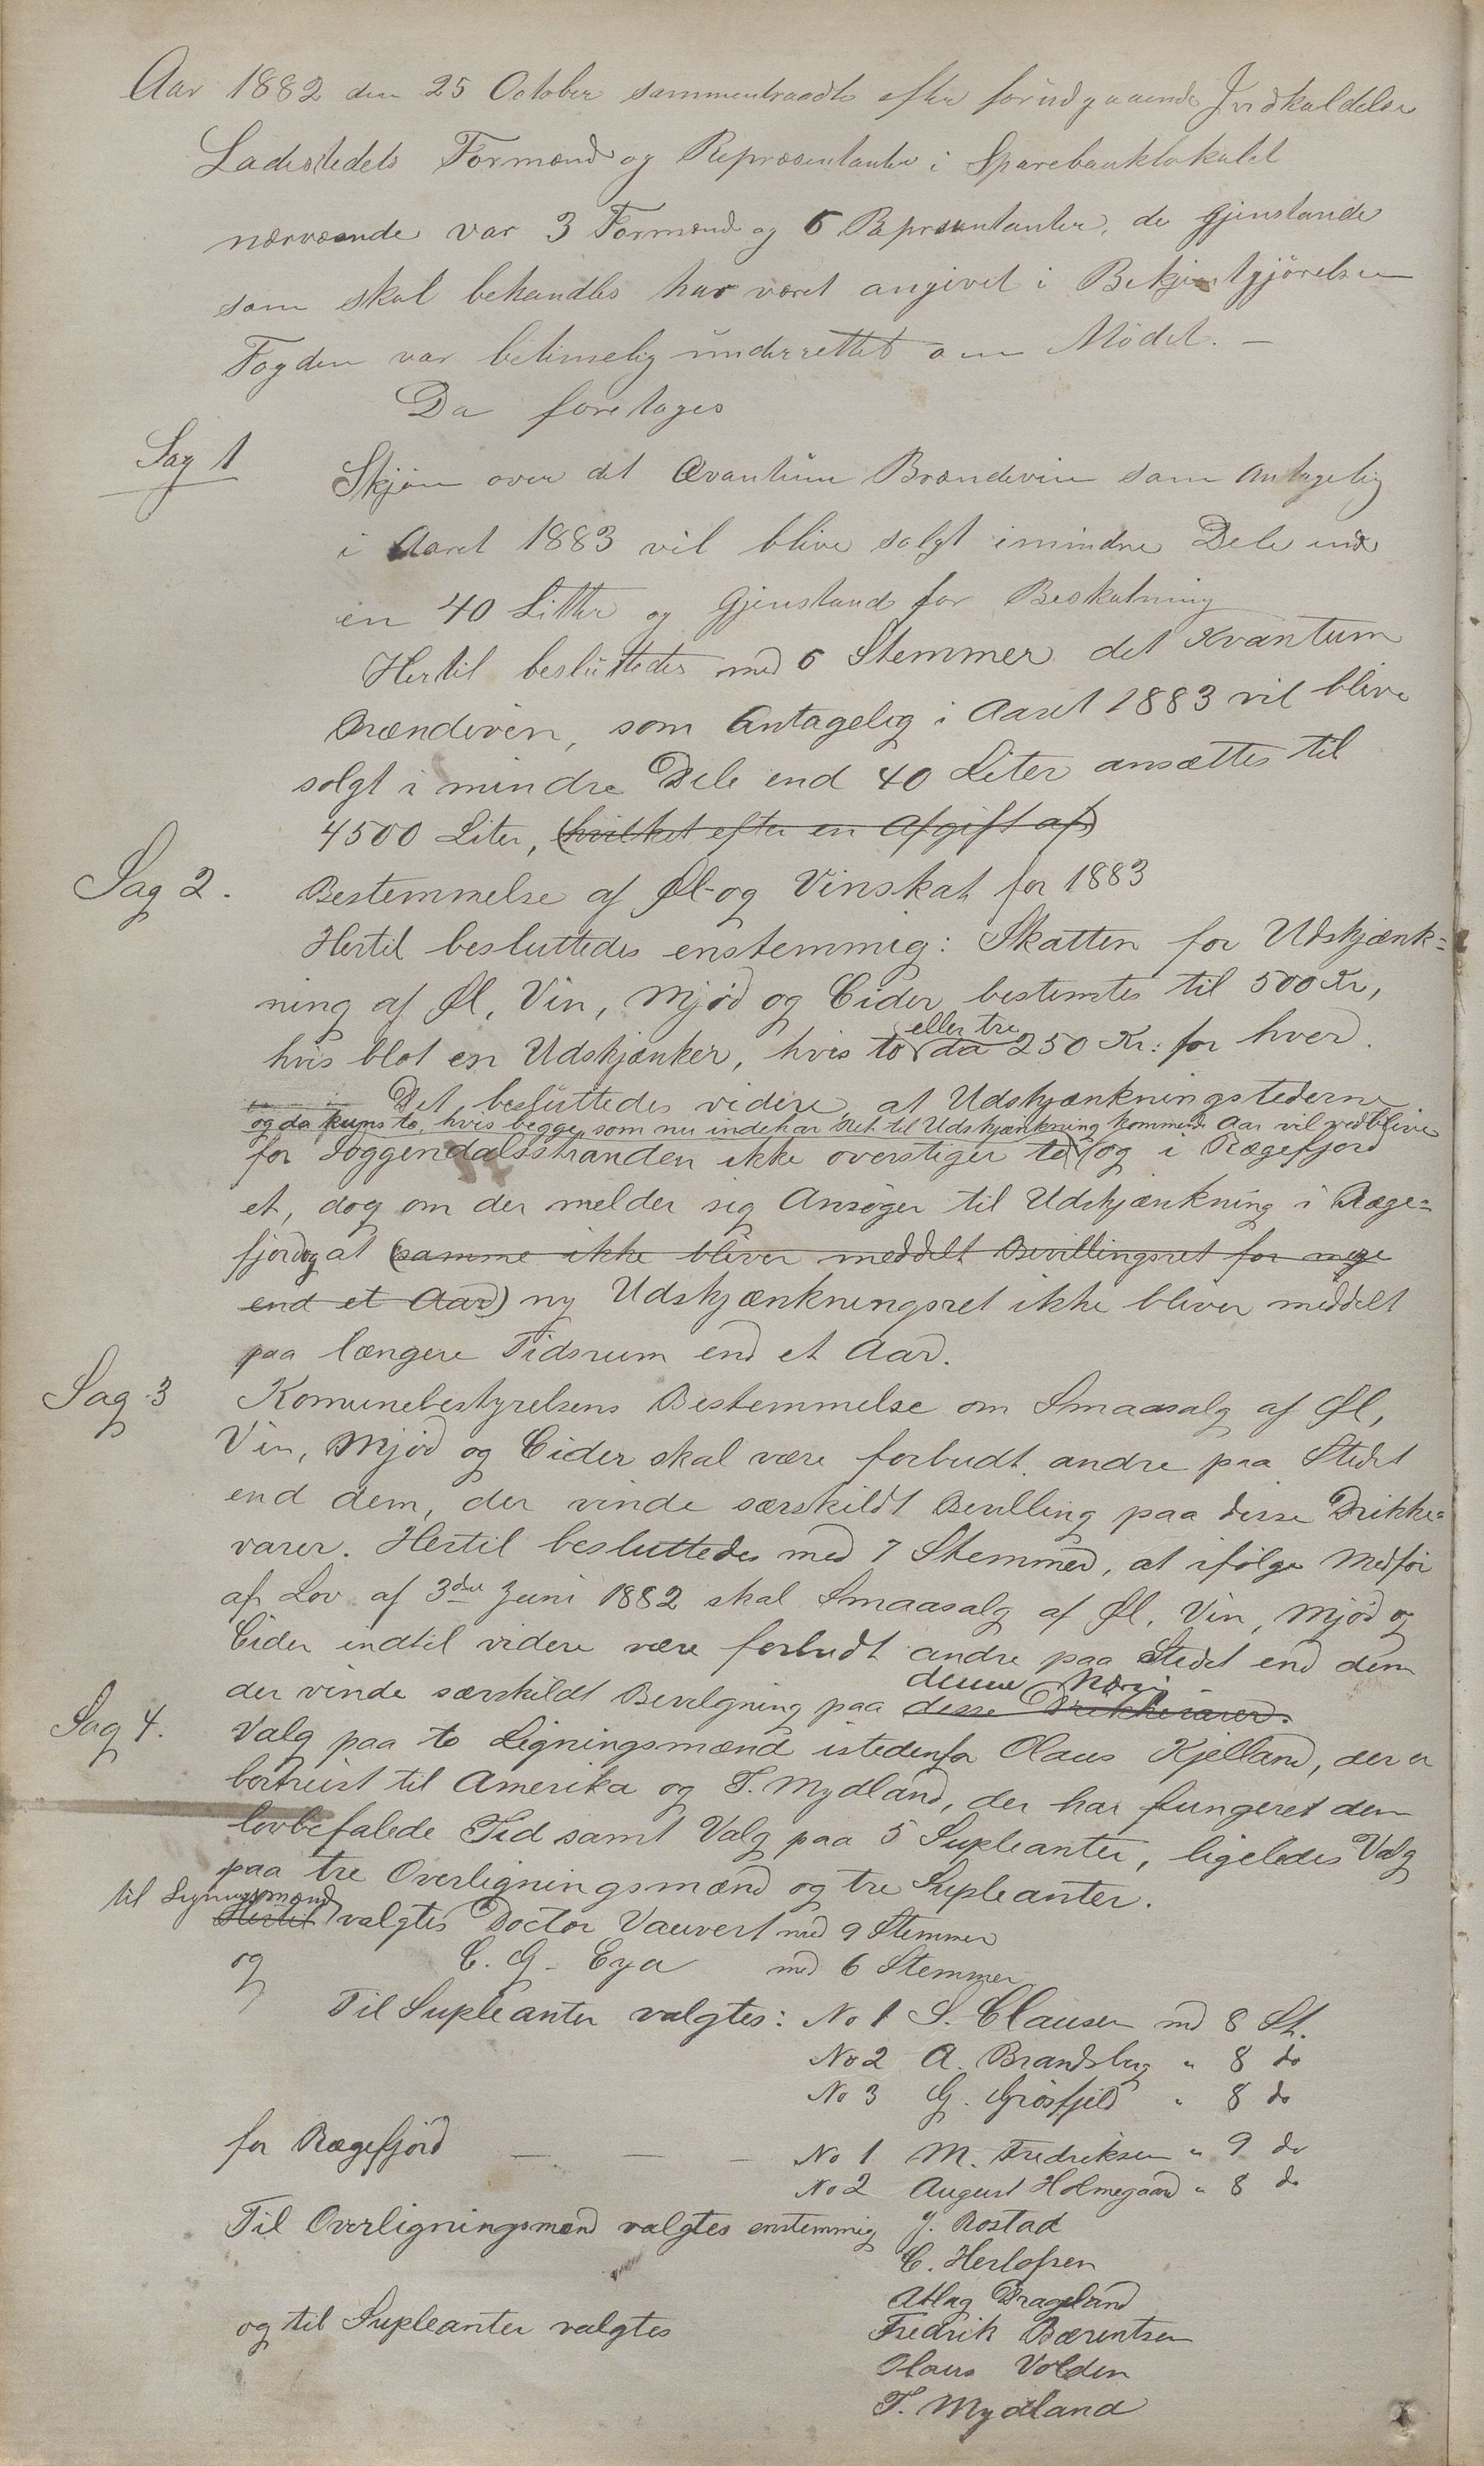 Aar 1882 den 25 October sammentraadte efter forudgaaende Indkaldelse
Ladestedets Formænd og Repræsentanter i Sparebanklokalet
nærværende var 3 Formænd og 6 Repræsentanter, de Gjenstande
som skal behandles har været angivet i Bekjentgjørelsen
Fogden var betimelig underrettet om Mødet. –
Da foretages
Sag 1
Skjøn over det Qvantum Brændevin som antagelig
i Aaret 1883 vil blive solgt i mindre Dele end
en 40 Litter og Gjenstand for Beskatning
Hertil besluttedes med 6 Stemmer det Kvantum
Brændevin, som Antagelig i Aaret 1883 vil blive
solgt i mindre Dele end 40 Liter ansættes til
4500 Liter, (hvilket efter en Afgift af)
Sag 2.
Bestemmelse af Øl- og Vinskat for 1883
Hertil besluttedes enstemmig: Skatten for Udskjænk=
ning af Øl, Vin, Mjød og Cider bestemtes til 500 Kr,
hvis blot en Udskjænker, hvis to eller tre da 250 Kr: for hver.
Det besluttedes videre, at Udskjænkningstederne
og da kuns to, hvis begge, som nu indehar Ret til Udskjænkning kommende Aar vil vedblive
for Soggendalsstranden ikke overstiger to (og i Rægefjord
et, dog om der melder sig Ansøger til Udskjænkning i Ræge=
fjord og at (samme ikke bliver meddelt Bevillingsret for mere
end et Aar) ny Udskjænkningsret ikke bliver meddelt
paa længere Tidsrum end et Aar.
Sag 3
Komunebestyrelsens Bestemmelse om Smaasalg af Øl,
Vin, Mjød og Cider skal være forbudt andre paa Stedet
end dem, der vinde særskildt Bevilling paa disse Drikke=
varer. Hertil besluttedes med 7 Stemmer, at ifølge Medfør
af Lov af 3die Juni 1882 skal Smaasalg af Øl, Vin, Mjød og
Cider indtil videre være forbudt andre paa Stedet end dem
der vinde særskildt Bevilgning paa disse Drikkevarer. denne Næring
Sag 4.
Valg paa to Ligningsmænd istedenfor Olaus Kjelland, der er
bortreist til Amerika og T. Mydland, der har fungeret den
lovbefalede Tid samt Valg paa 5 Supleanter, ligeledes Valg
paa tre Overligningsmænd og tre Supleanter.
til Ligningsmænd
Hertil valgtes Doctor Vauvert med 9 Stemmer
og C. G. Eya med 6 Stemmer
Til Supleanter valgtes: No 1 S. Clausen med 8 St.
No 2 A. Brandsberg " 8 do
No 3 G. Grøsfjeld " 8 do
for Rægefjord — — — No 1 M. Fredriksen " 9 do
No 2 August Holmegaard " 8 do
Til Overligningsmænd valgtes enstemmig J. Rostad
C. Herlofsen
Atlag Drageland
og til Supleanter valgtes Fredrik Bærentsen
Olaus Volden
T. Mydland